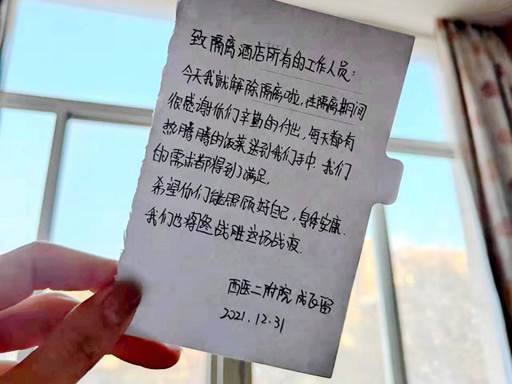 致隔离酒店所有的工作人员：
今天我就解除隔离啦，在隔离期间
很感谢你们辛勤的付出，每天都有
热腾腾的饭菜送到我们手中，我们
的需求都得到了满足。
希望你们能照顾好自己，身体安康。
我们也将终战胜这场战疫。
西医二附院
2021.12.31